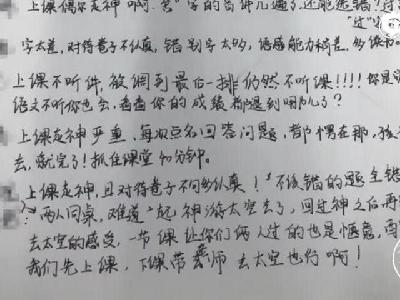 上课偶尔走神啊."
字太差,对待卷子不认真,错别字太多,语感能力稍差,多练
上课不听件,放纲到最后一排仍然不听课!!!! 你是
语文不听你也会,看看你的成绩都退到哪儿了?
上课走神严重.每次点名回答问题,都愣在那,
去,就完了!抓住课堂40分钟。
上课走神,且对待卷子不够认真!不该错的题全错
:两人同桌,难道一起神游太空去了,回过神之后再
去太空的感受,一节课让你们俩人过的也是惬意,
我们先上课,下课带老师去太空也行啊!